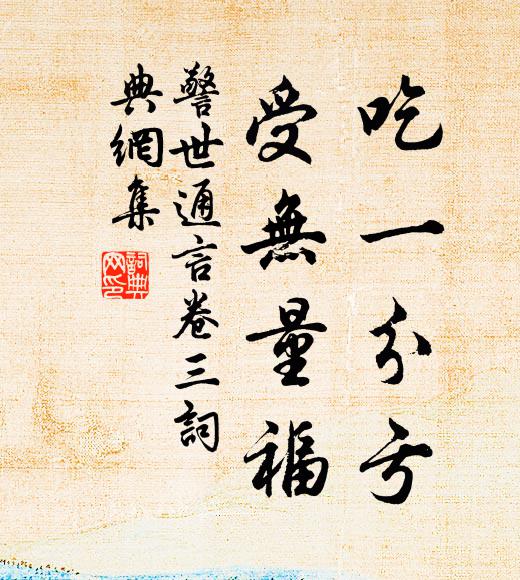 吃一分亏
受無量福
警世通言卷三詞
典網集
詞典
网印